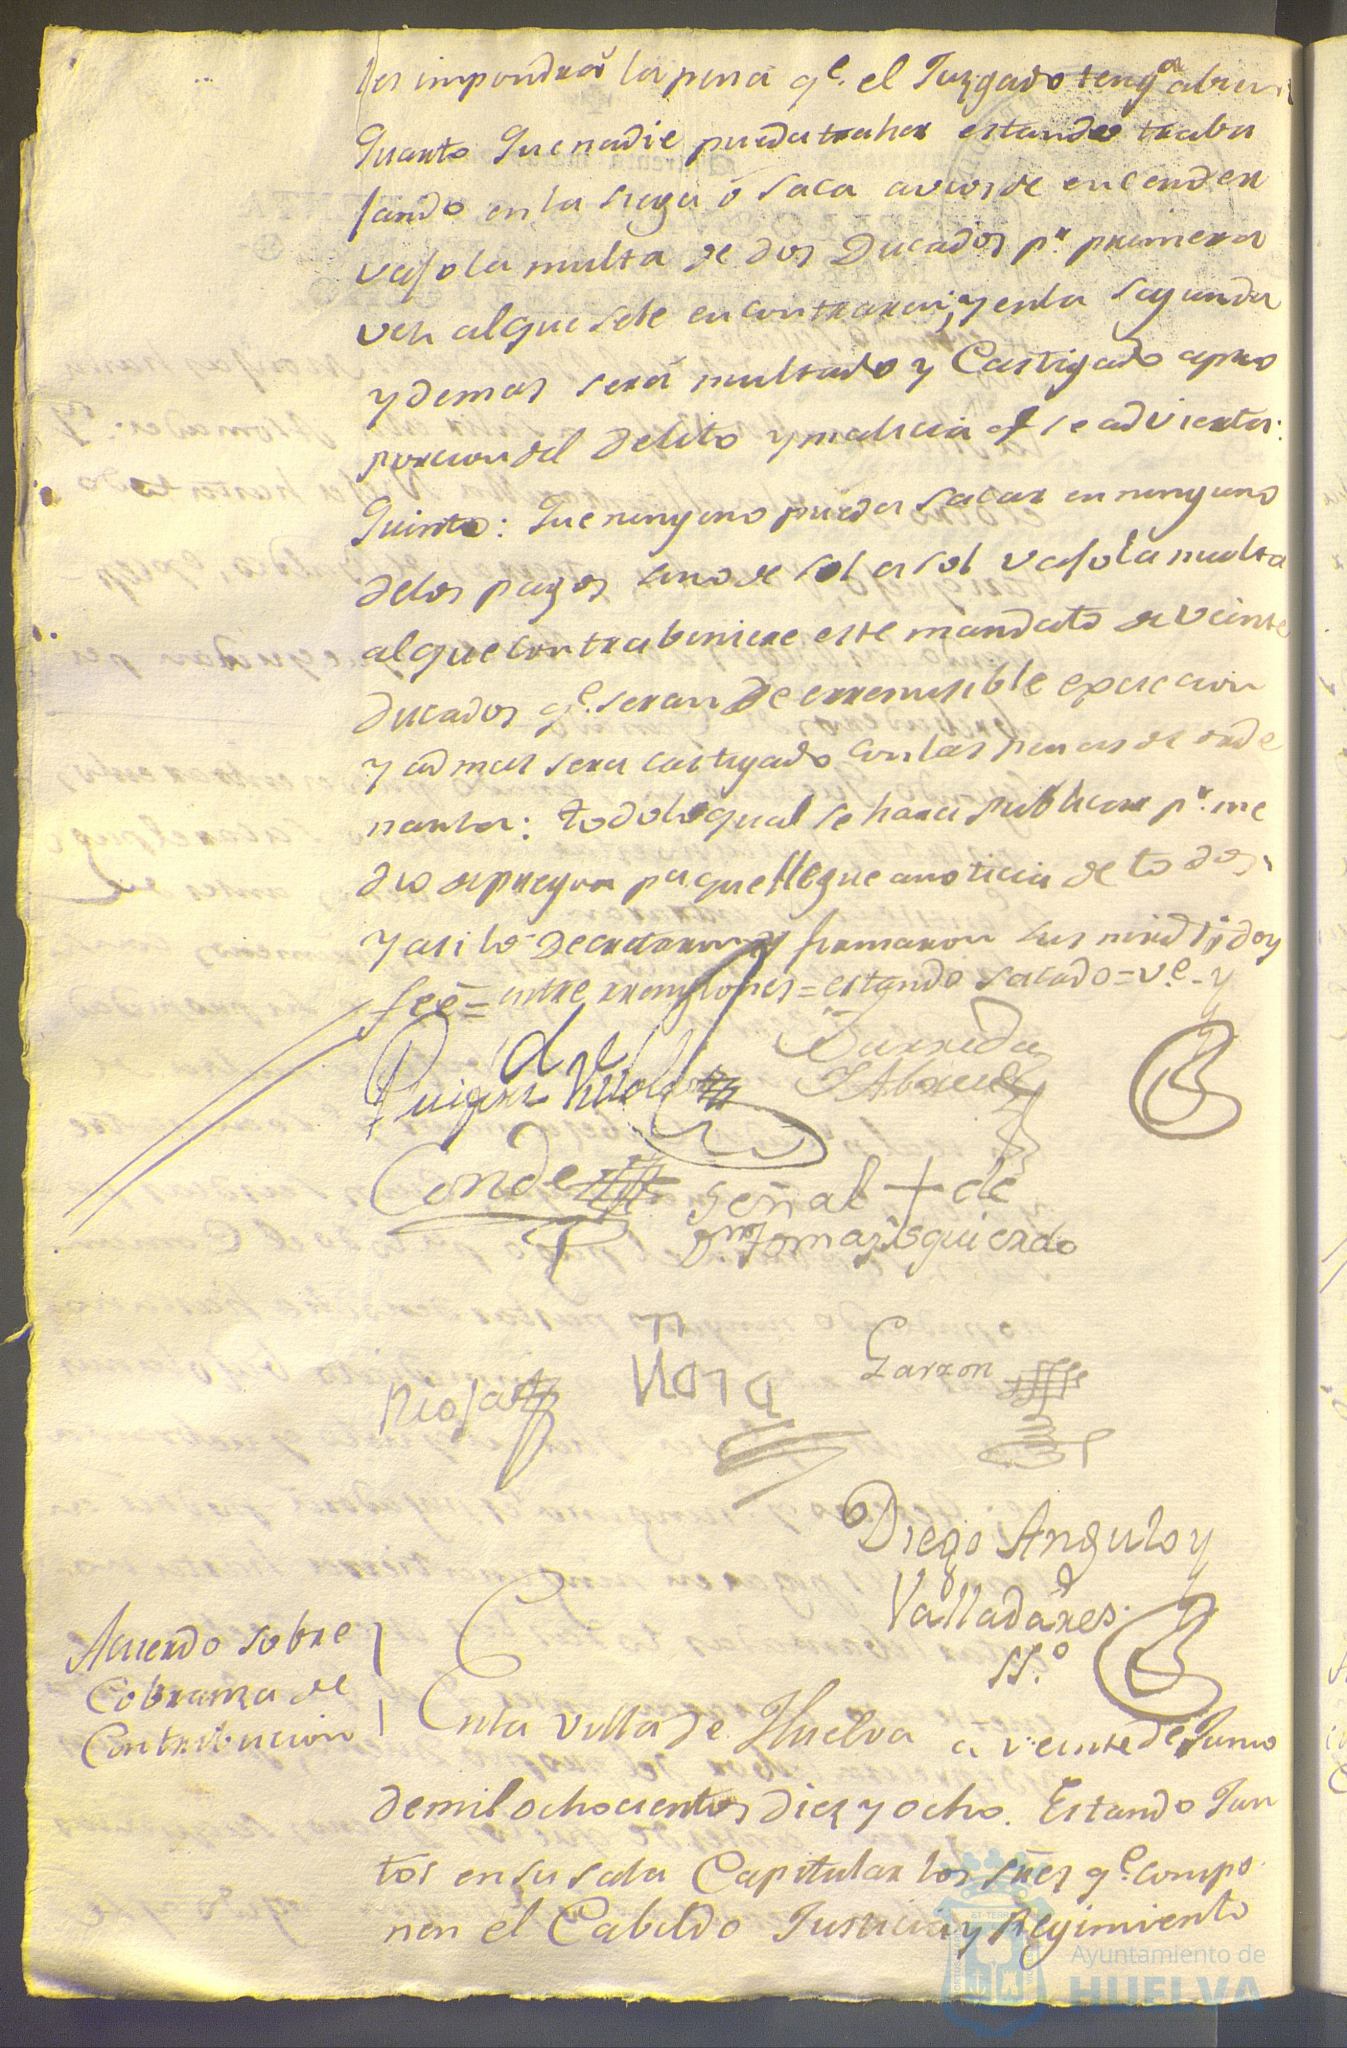 les impondra la pena qe. el Juzgado tenga abien
Quarto Que nadie pueda traher estando traba
jando en la siega ó saca avios de encender
vajo la multa de dos Ducados pr. primera
vez al que sele encontraren; y enla segunda
y demas será multado y Castigado apro
porcion del delito y malicia q se advierta:
Quinto: Que ninguno pueda sacar en ninguno
delos pagos sino de sol a sol vajo la multa
al que contrabiniere este mandato de veinte
ducados qe. seran de erremisible execucion
y admas sera castigado con las penas de orde
nanza: todo lo qual se hara publicar pr. me
dio de pregon pa. que llegue a noticia de todos,
y asi lo Decretaron y firmaron sus mrds doy
feé = entre renglones = estando sacado = ve. y
Barreda
Y Abreu
Conde
Señal + de
Dn Tomas Isquierdo
Garzon
Rioja
Diego Angulo y
Valladares.
SSo.
Acuerdo sobre
Cobranza de
Contribucion
Enla Villa de Huelva a veinte de Junio
de mil ochocientos diez y ocho. Estando Jun
tos en su sala Capitular los sres qe. compo
nen el Cabildo Justicia y Regimiento
Ayuntamiento de
HUELVA